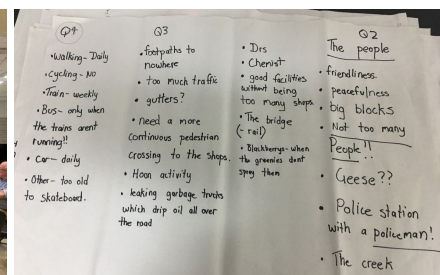 Q4
• Walking - Daily
• Cycling - NO
• Train - weekly
• Bus - only when
the trains arent
running!!
• Car - daily
• Other - too old
to skateboard.
Q3
• footpaths to
nowhere
• too much traffic
• gutters?
• need a more
continuous pedestrian
crossing to the shops.
• Hoon activity
• leaking garbage trucks
which drip oil all over
the road
• Drs
• Chemist
• good facilities
without being
too many shops
• The bridge
(- rail)
• Blackberrys - when
the greenies dont
spray them
Q2
The people
• friendliness
• peacefulness
• big blocks
• Not too many
People!!
• Geese??
• Police station
with a policeman!
• The creek